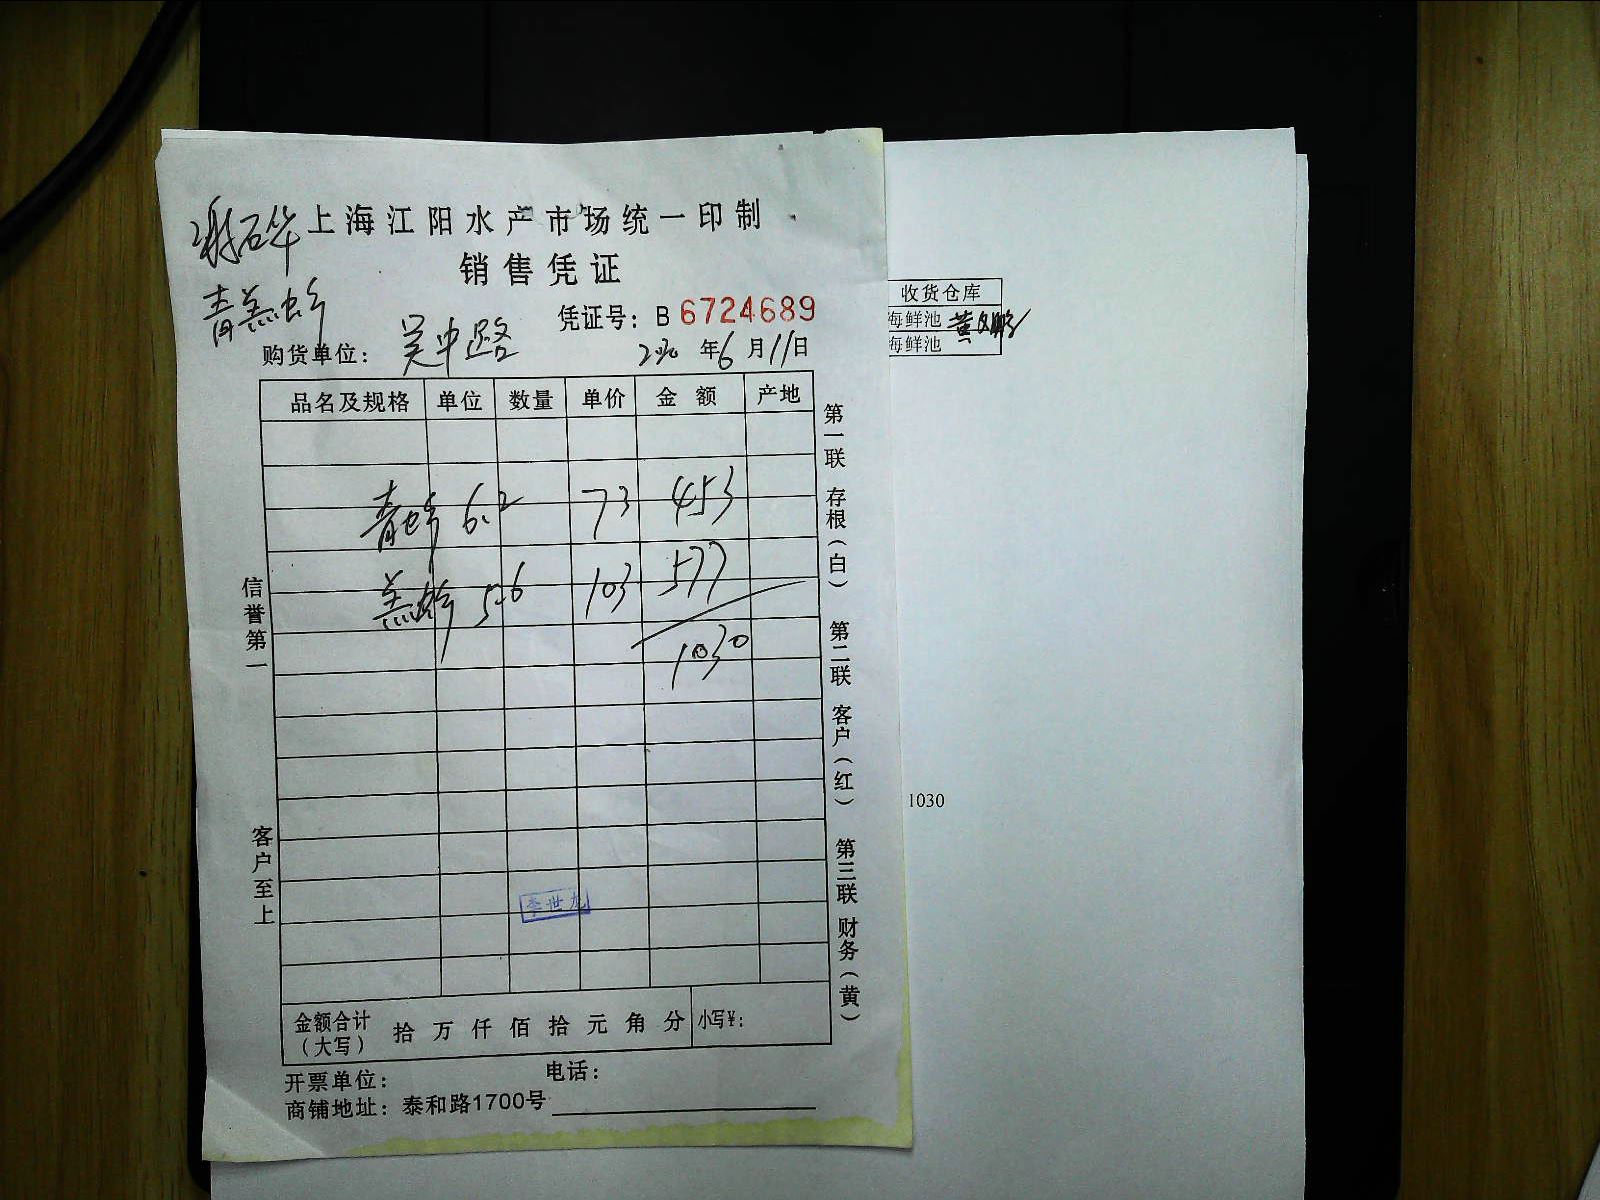 上海江阳水产市场统一印制
销售凭证
凭证号：B 6724689
购货单位：吴中路
年6月11日
品名及规格 单位 数量 单价 金额 产地
6.2 73 453
5.6 103 577
1030
信誉第一
客户至上
第一联 存根（白） 第二联 客户（红） 第三联 财务（黄）
李世龙
金额合计（大写） 拾万仟佰拾元角分 小写¥：
开票单位： 电话：
商铺地址：泰和路1700号
收货仓库
海鲜池
海鲜池
1030